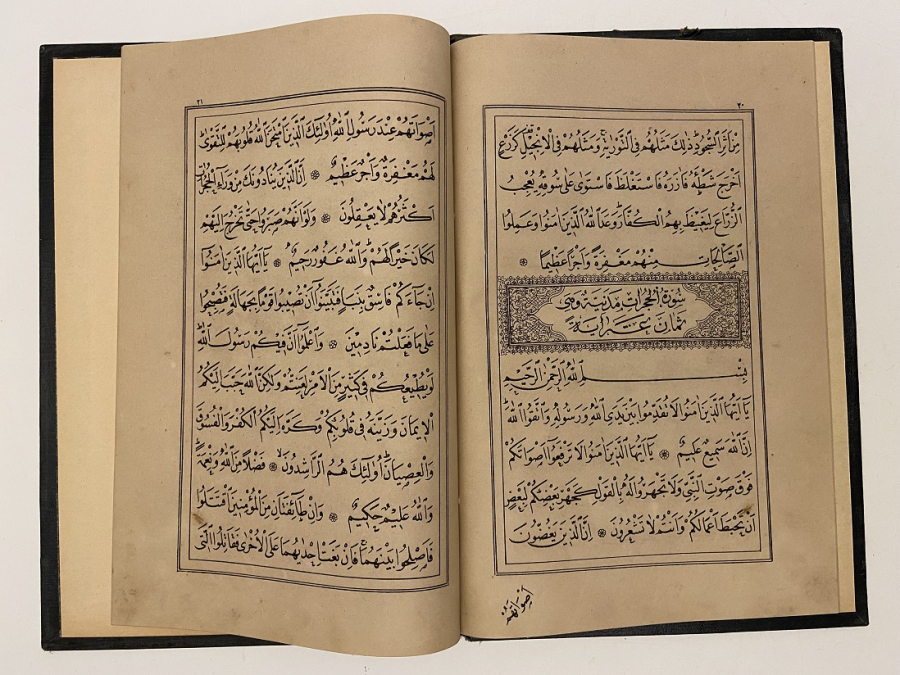 ٢٠
مِنْ اَثَرِ السُّجُودِ ذٰلِكَ مَثَلُهُمْ فِى التَّوْرٰيةِ وَمَثَلُهُمْ فِى الْاِنْجِيلِ كَزَرْعٍ
اَخْرَجَ شَطْـَٔهُ فَاٰزَرَهُ فَاسْتَغْلَظَ فَاسْتَوٰى عَلٰى سُوقِهِ يُعْجِبُ
الزُّرَّاعَ لِيَغِيظَ بِهِمُ الْكُفَّارَ وَعَدَ اللّٰهُ الَّذِينَ اٰمَنُوا وَعَمِلُوا
الصَّالِحَاتِ مِنْهُمْ مَغْفِرَةً وَاَجْرًا عَظِيمًا
سُورَةُ الْحُجُرَاتِ مَدَنِيَّةٌ وَهِىَ
ثَمَانَ عَشَرَ اٰيَةً
بِسْمِ اللّٰهِ الرَّحْمٰنِ الرَّحِيمِ
يَٓا اَيُّهَا الَّذِينَ اٰمَنُوا لَا تُقَدِّمُوا بَيْنَ يَدَىِ اللّٰهِ وَرَسُولِهِ وَاتَّقُوا اللّٰهَ
اِنَّ اللّٰهَ سَمِيعٌ عَلِيمٌ يَٓا اَيُّهَا الَّذِينَ اٰمَنُوا لَا تَرْفَعُٓوا اَصْوَاتَكُمْ
فَوْقَ صَوْتِ النَّبِىِّ وَلَا تَجْهَرُوا لَهُ بِالْقَوْلِ كَجَهْرِ بَعْضِكُمْ لِبَعْضٍ
اَنْ تَحْبَطَ اَعْمَالُكُمْ وَاَنْتُمْ لَا تَشْعُرُونَ اِنَّ الَّذِينَ يَغُضُّونَ
اَصْوَاتَهُمْ
٢١
اَصْوَاتَهُمْ عِنْدَ رَسُولِ اللّٰهِ اُولٰٓئِكَ الَّذِينَ امْتَحَنَ اللّٰهُ قُلُوبَهُمْ لِلتَّقْوٰى
لَهُمْ مَغْفِرَةٌ وَاَجْرٌ عَظِيمٌ اِنَّ الَّذِينَ يُنَادُونَكَ مِنْ وَرَٓاءِ الْحُجُرَاتِ
اَكْثَرُهُمْ لَا يَعْقِلُونَ وَلَوْ اَنَّهُمْ صَبَرُوا حَتّٰى تَخْرُجَ اِلَيْهِمْ
لَكَانَ خَيْرًا لَهُمْ وَاللّٰهُ غَفُورٌ رَحِيمٌ يَٓا اَيُّهَا الَّذِينَ اٰمَنُٓوا
اِنْ جَٓاءَكُمْ فَاسِقٌ بِنَبَاٍ فَتَبَيَّنُٓوا اَنْ تُصِيبُوا قَوْمًا بِجَهَالَةٍ فَتُصْبِحُوا
عَلٰى مَا فَعَلْتُمْ نَادِمِينَ وَاعْلَمُٓوا اَنَّ فِيكُمْ رَسُولَ اللّٰهِ
لَوْ يُطِيعُكُمْ فِى كَثِيرٍ مِنَ الْاَمْرِ لَعَنِتُّمْ وَلٰكِنَّ اللّٰهَ حَبَّبَ اِلَيْكُمُ
الْاِيمَانَ وَزَيَّنَهُ فِى قُلُوبِكُمْ وَكَرَّهَ اِلَيْكُمُ الْكُفْرَ وَالْفُسُوقَ
وَالْعِصْيَانَ اُولٰٓئِكَ هُمُ الرَّاشِدُونَ فَضْلًا مِنَ اللّٰهِ وَنِعْمَةً
وَاللّٰهُ عَلِيمٌ حَكِيمٌ وَاِنْ طَٓائِفَتَانِ مِنَ الْمُؤْمِنِينَ اقْتَتَلُوا
فَاَصْلِحُوا بَيْنَهُمَا فَاِنْ بَغَتْ اِحْدٰيهُمَا عَلَى الْاُخْرٰى فَقَاتِلُوا الَّتِى